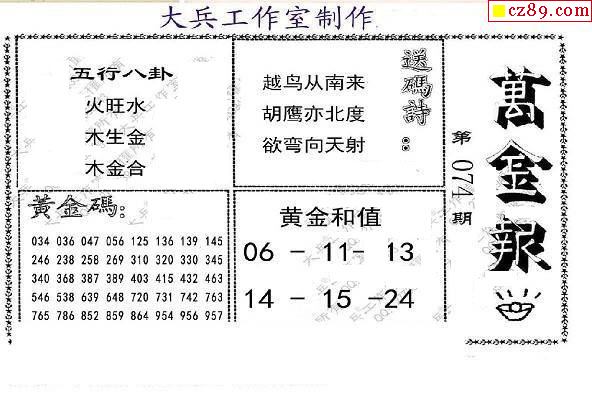 大兵工作室制作
cz89.com
五行八卦
火旺水
木生金
木金合
送碼詩：
越鸟从南来
胡鹰亦北度
欲弯向天射
萬金报
第074期
黃金碼：
034 036 047 056 125 136 139 145
246 238 258 269 310 320 330 345
340 368 387 389 403 415 432 463
546 538 639 648 720 731 742 763
765 786 852 859 864 954 956 957
黄金和值
06 - 11- 13
14 - 15 -24